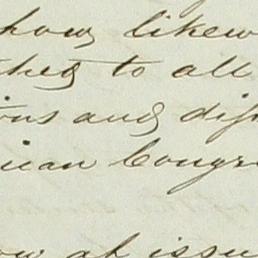 how likew
ched to all
ions and dif
ican Congr
of issu